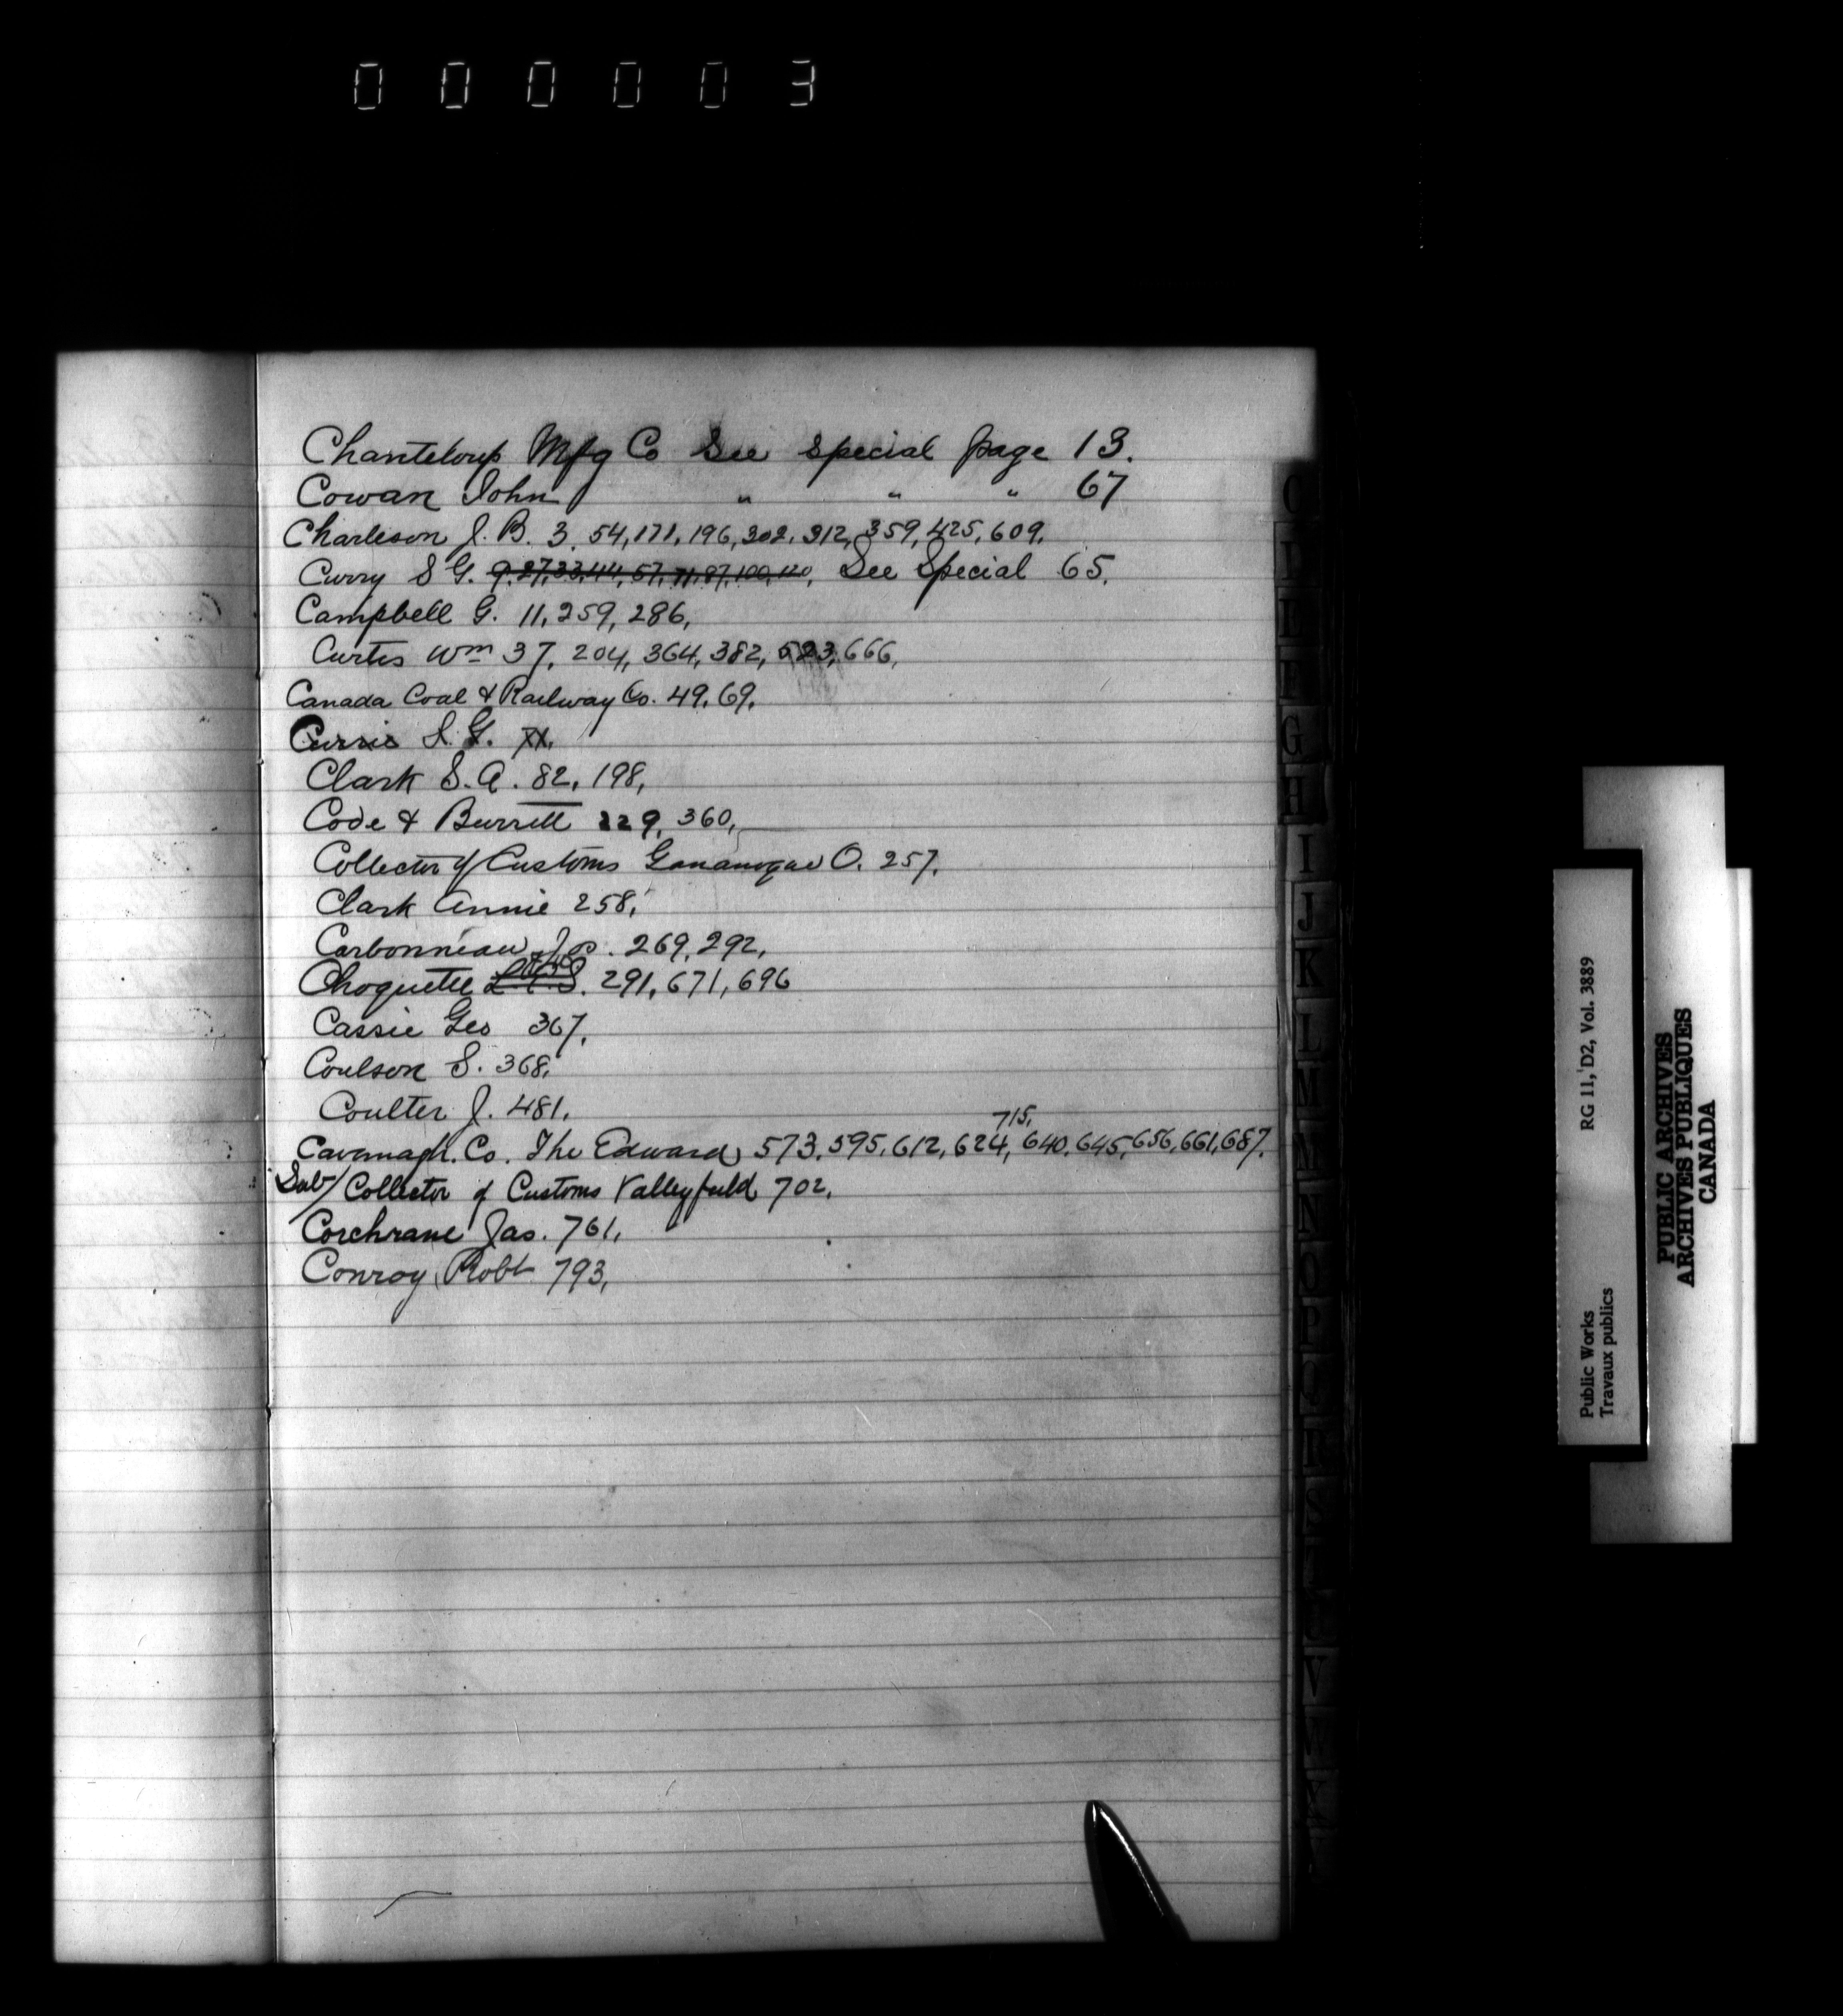 000003
Chanteloup Mfg Co See special page 13.
Cowan John " " " 67
Charleson J. B. 3, 54, 171, 196, 302, 312, 359, 425, 609.
Curry S G. 9, 27, 33, 44, 57, 71, 87, 100, 120, See Special 65.
Campbell G. 11, 259, 286,
Curtis Wm 37, 204, 364, 382, 623, 666,
Canada Coal & Railway Co. 49, 69.
Currie S. G. XX.
Clark S. A. 82, 198,
Code & Burritt 229, 360,
Collector of Customs Gananoque O. 257.
Clark Annie 258,
Carbonneau Jos. 269, 292,
Choquette L.C.S. 291, 671, 696
Cassie Geo 367,
Coulson S. 368,
Coulter J. 481.
715,
Cavanagh. Co. The Edward 573, 595, 612, 624, 640, 645, 656, 661, 687.
Sub/Collector of Customs Valleyfield 702,
Corchrane Jas. 761,
Conroy Robt 793,
G
H
I
J
K
L
M
N
O
P
S
V
RG 11, D2, Vol. 3889
Public Works
Travaux publics
PUBLIC ARCHIVES
ARCHIVES PUBLIQUES
CANADA